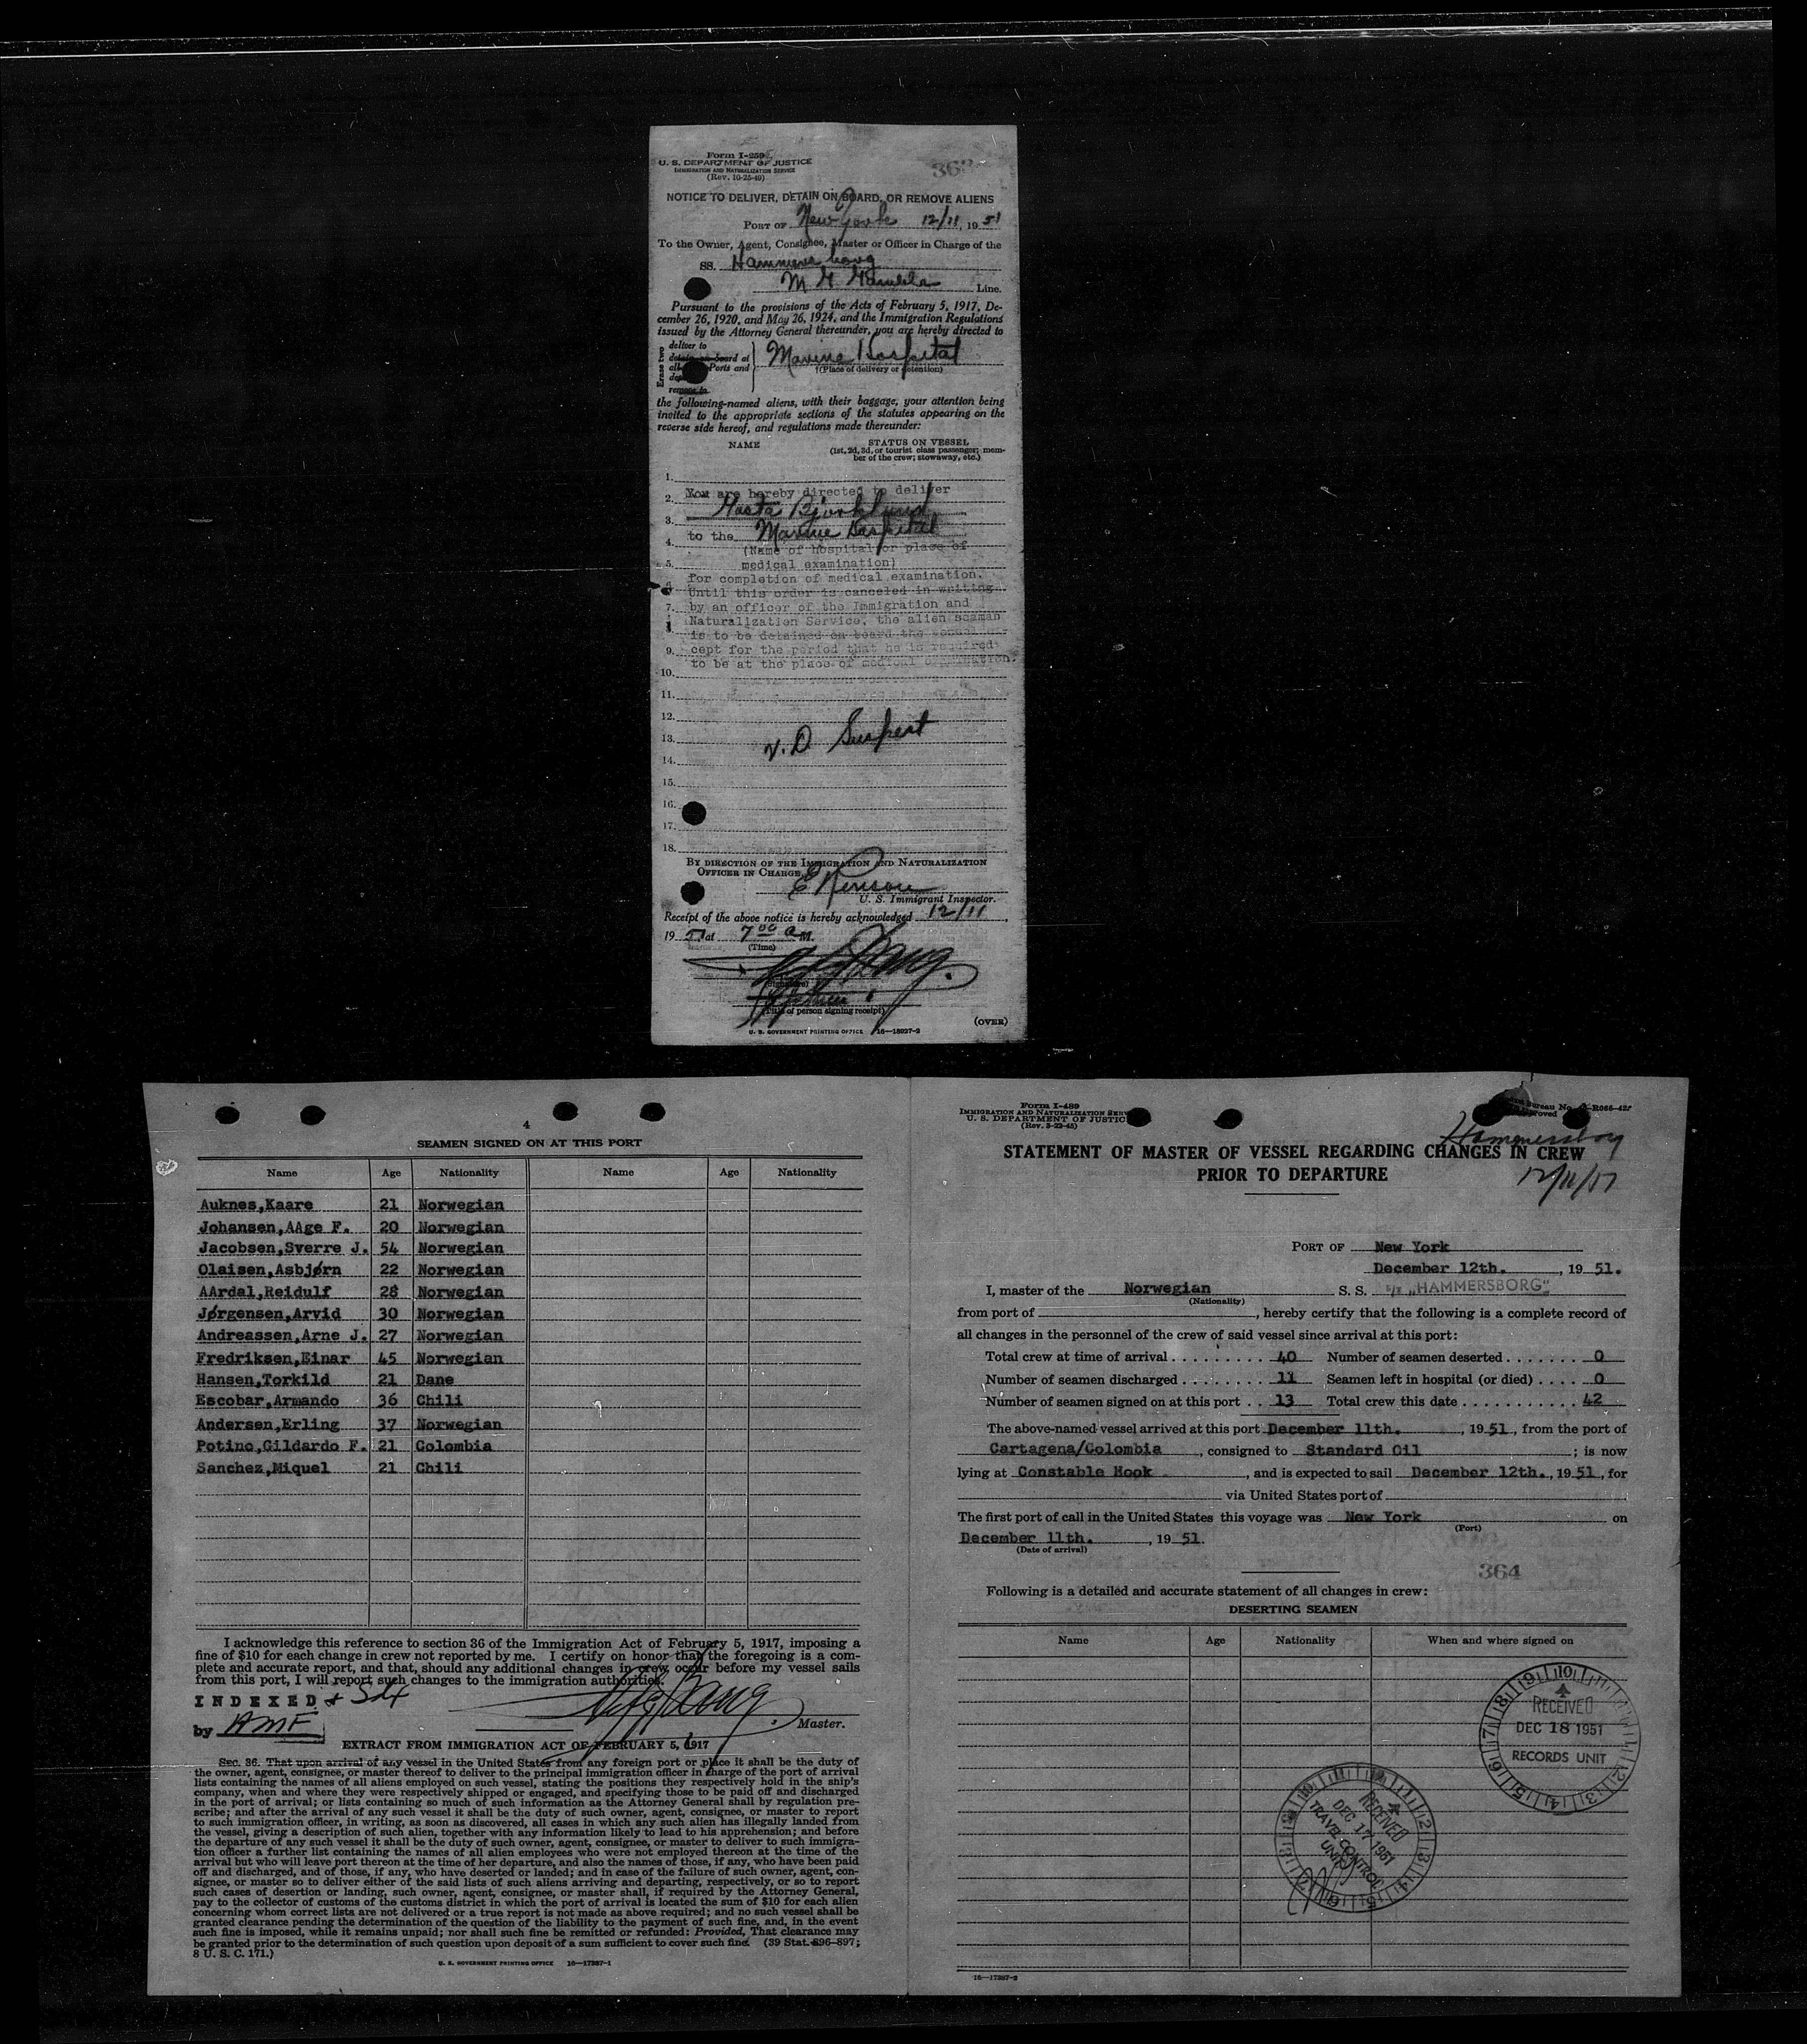 Form I-259
U. S. DEPARTMENT OF JUSTICE
IMMIGRATION AND NATURALIZATION SERVICE
(Rev. 10-25-49)
363
NOTICE TO DELIVER, DETAIN ON BOARD, OR REMOVE ALIENS
PORT OF New York 12/11, 1951
To the Owner, Agent, Consignee, Master or Officer in Charge of the
SS. Hammersborg
M G Line.
Pursuant to the provisions of the Acts of February 5, 1917, De-
cember 26, 1920, and May 26, 1924, and the Immigration Regulations
issued by the Attorney General thereunder, you are hereby directed to
Erase two
deliver to
detain on board at
all Ports and
remove to
Marine Hospital
(Place of delivery or detention)
the following-named aliens, with their baggage, your attention being
invited to the appropriate sections of the statutes appearing on the
reverse side hereof, and regulations made thereunder:
NAME STATUS ON VESSEL
(1st, 2d, 3d, or tourist class passenger; mem-
ber of the crew; stowaway, etc.)
1.
2. You are hereby directed to deliver
Gosta Bjorklund
3.
to the Marine Hospital
4.
(Name of hospital or place of
5. medical examination)
for completion of medical examination.
Until this order is canceled in writing
7. by an officer of the Immigration and
Naturalization Service, the alien seaman
is to be detained on board the vessel
9. cept for the period that he is required
to be at the place of medical examination.
10.
11.
12.
13. V. D Suspect
14.
15.
16.
17.
18.
BY DIRECTION OF THE IMMIGRATION AND NATURALIZATION
OFFICER IN CHARGE,
U. S. Immigrant Inspector.
Receipt of the above notice is hereby acknowledged 12/11,
1951 at 7 00 A M.
(Time)
(Signature)
(Title of person signing receipt)
U. S. GOVERNMENT PRINTING OFFICE 16—18027-2
(OVER)
4
SEAMEN SIGNED ON AT THIS PORT
Name Age Nationality Name Age Nationality
Auknes,Kaare 21 Norwegian
Johansen,AAge F. 20 Norwegian
Jacobsen,Sverre J. 54 Norwegian
Olaisen,Asbjørn 22 Norwegian
AArdal,Reidulf 28 Norwegian
Jørgensen,Arvid 30 Norwegian
Andreassen,Arne J. 27 Norwegian
Fredriksen,Einar 45 Norwegian
Hansen,Torkild 21 Dane
Escobar,Armando 36 Chili
Andersen,Erling 37 Norwegian
Potino,Gildardo F. 21 Colombia
Sanchez,Miquel 21 Chili
I acknowledge this reference to section 36 of the Immigration Act of February 5, 1917, imposing a
fine of $10 for each change in crew not reported by me. I certify on honor that the foregoing is a com-
plete and accurate report, and that, should any additional changes in crew occur before my vessel sails
from this port, I will report such changes to the immigration authorities.
INDEXED
by AMF
Master.
EXTRACT FROM IMMIGRATION ACT OF FEBRUARY 5, 1917
SEC. 36. That upon arrival of any vessel in the United States from any foreign port or place it shall be the duty of
the owner, agent, consignee, or master thereof to deliver to the principal immigration officer in charge of the port of arrival
lists containing the names of all aliens employed on such vessel, stating the positions they respectively hold in the ship's
company, when and where they were respectively shipped or engaged, and specifying those to be paid off and discharged
in the port of arrival; or lists containing so much of such information as the Attorney General shall by regulation pre-
scribe; and after the arrival of any such vessel it shall be the duty of such owner, agent, consignee, or master to report
to such immigration officer, in writing, as soon as discovered, all cases in which any such alien has illegally landed from
the vessel, giving a description of such alien, together with any information likely to lead to his apprehension; and before
the departure of any such vessel it shall be the duty of such owner, agent, consignee, or master to deliver to such immigra-
tion officer a further list containing the names of all alien employees who were not employed thereon at the time of the
arrival but who will leave port thereon at the time of her departure, and also the names of those, if any, who have been paid
off and discharged, and of those, if any, who have deserted or landed; and in case of the failure of such owner, agent, con-
signee, or master so to deliver either of the said lists of such aliens arriving and departing, respectively, or so to report
such cases of desertion or landing, such owner, agent, consignee, or master shall, if required by the Attorney General,
pay to the collector of customs of the customs district in which the port of arrival is located the sum of $10 for each alien
concerning whom correct lists are not delivered or a true report is not made as above required; and no such vessel shall be
granted clearance pending the determination of the question of the liability to the payment of such fine, and, in the event
such fine is imposed, while it remains unpaid; nor shall such fine be remitted or refunded: Provided, That clearance may
be granted prior to the determination of such question upon deposit of a sum sufficient to cover such fine. (39 Stat. 896-897;
8 U. S. C. 171.)
U. S. GOVERNMENT PRINTING OFFICE 16—17387-1
Form I-489
IMMIGRATION AND NATURALIZATION SERV
U. S. DEPARTMENT OF JUSTIC
(Rev. 3-23-45)
Bureau No. R066-42
Hammersborg
12/11/51
STATEMENT OF MASTER OF VESSEL REGARDING CHANGES IN CREW
PRIOR TO DEPARTURE
PORT OF New York
December 12th., 1951.
I, master of the Norwegian S. S. S/S „HAMMERSBORG"
(Nationality)
from port of , hereby certify that the following is a complete record of
all changes in the personnel of the crew of said vessel since arrival at this port:
Total crew at time of arrival 40 Number of seamen deserted 0
Number of seamen discharged 11 Seamen left in hospital (or died) 0
Number of seamen signed on at this port 13 Total crew this date 42
The above-named vessel arrived at this port December 11th., 1951, from the port of
Cartagena/Colombia, consigned to Standard Oil; is now
lying at Constable Hook, and is expected to sail December 12th., 1951, for
via United States port of
The first port of call in the United States this voyage was New York on
(Port)
December 11th., 1951.
(Date of arrival)
364
Following is a detailed and accurate statement of all changes in crew:
DESERTING SEAMEN
Name Age Nationality When and where signed on
RECEIVED
DEC 18 1951
RECORDS UNIT
RECEIVED
DEC 17 1951
TRAVEL CONTROL
UNIT
16—17387-2